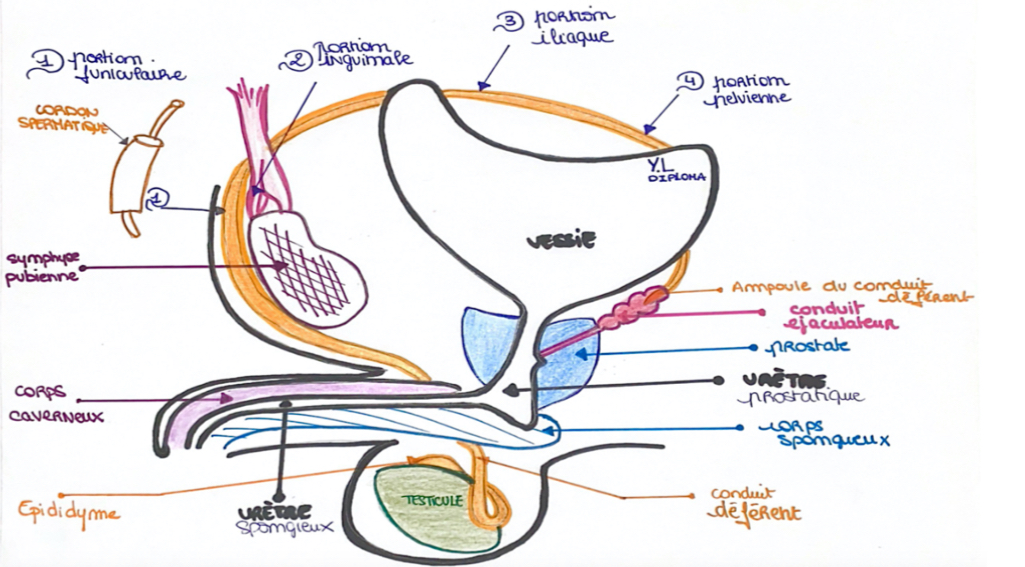 ③ portion
iliaque
② portion
inguinale
① portion
funiculaire
④ portion
pelvienne
CORDON
SPERMATIQUE
①
Y.L
DIPLOMA
VESSIE
symphyse
pubienne
Ampoule du conduit
déférent
conduit
ejaculateur
prostate
URÈTRE
prostatique
CORPS
caverneux
CORPS
spongieux
TESTICULE
Epididyme
URÈTRE
spongieux
conduit
déférent